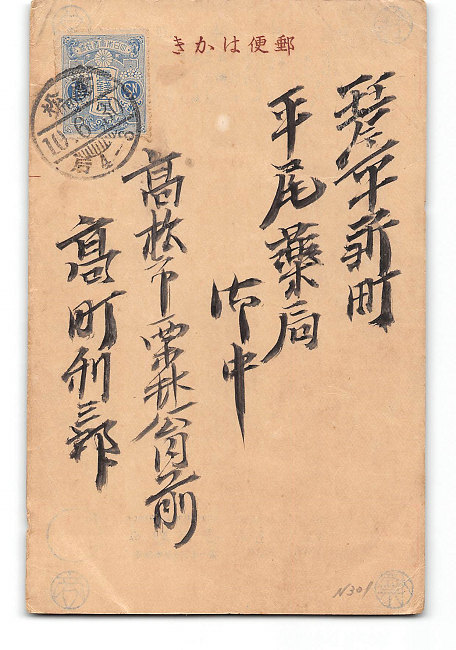 郵便はかき
琴平新町
平尾薬局
御中
高松市栗林公園前
高町利三郎
N309